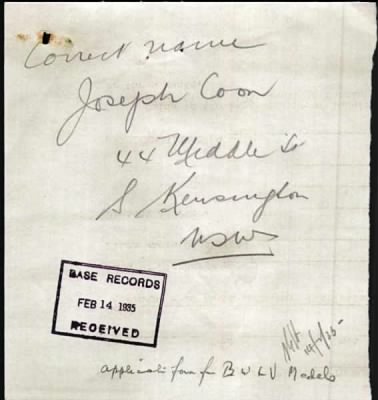 Correct name
Joseph Coon
44 Middle St
S Kensington
NSW
BASE RECORDS
FEB 14 1935
RECEIVED
application form for B W & V Medals